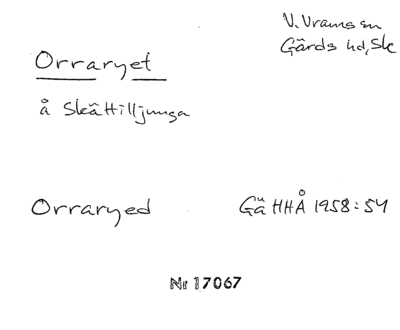 V. Vrams sn
Gärds hd, Sk
Orraryet
å Skättilljunga
Orraryed
GäHHÅ 1958:54
Nr 17067